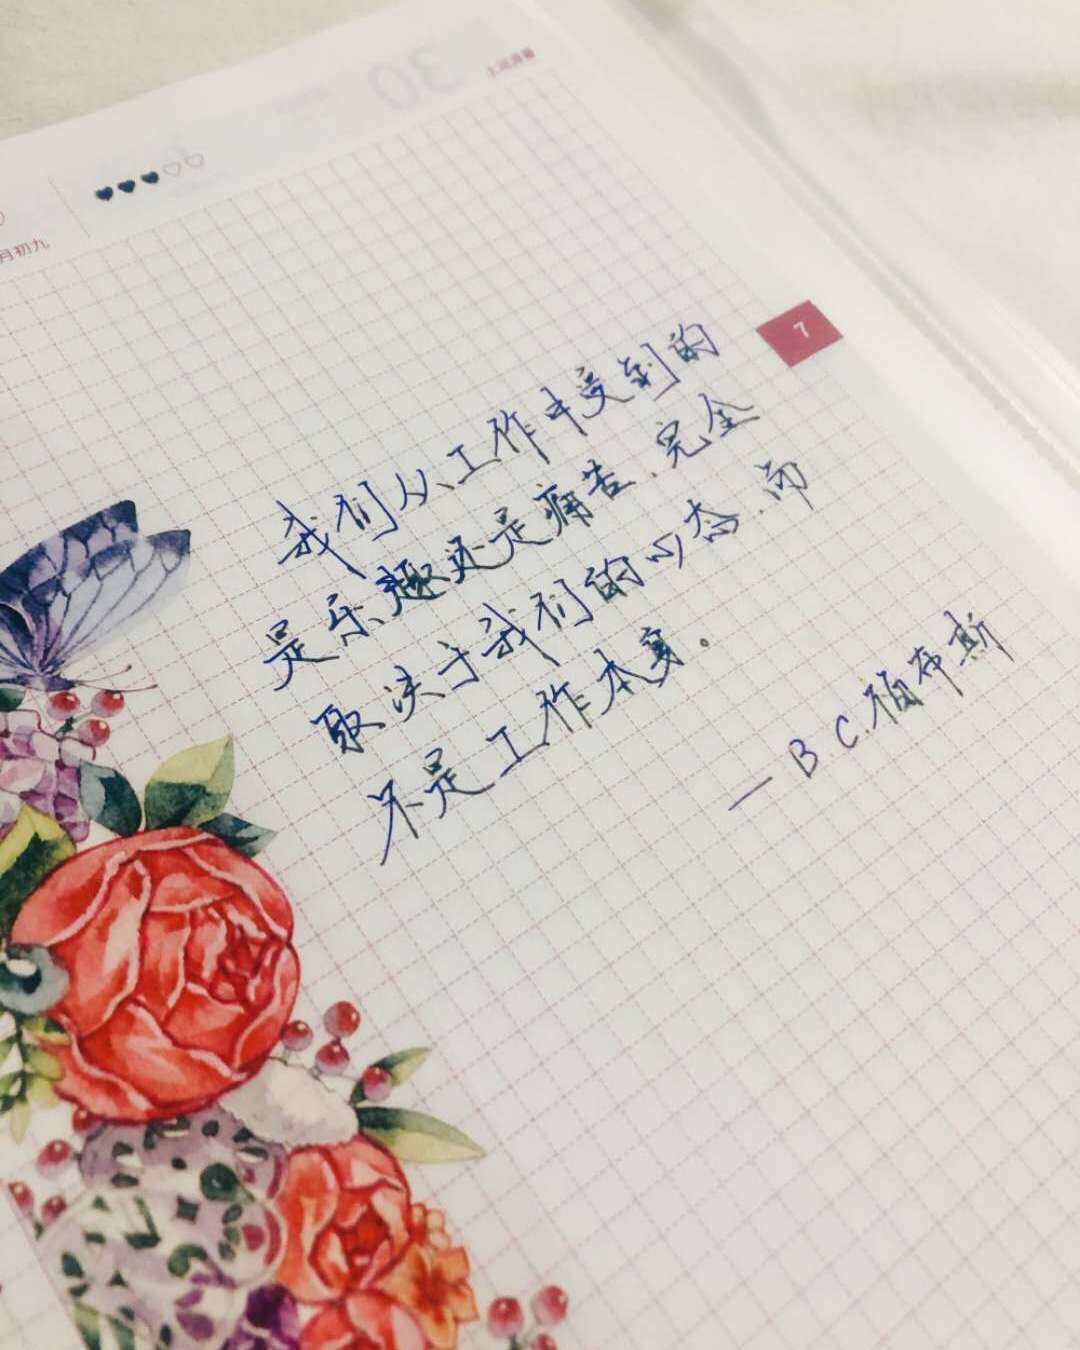 30
月初九
7
我们从工作中受到的
是乐趣还是痛苦、完全
取决于我们的心态.而
不是工作本身。
—B C.福布斯